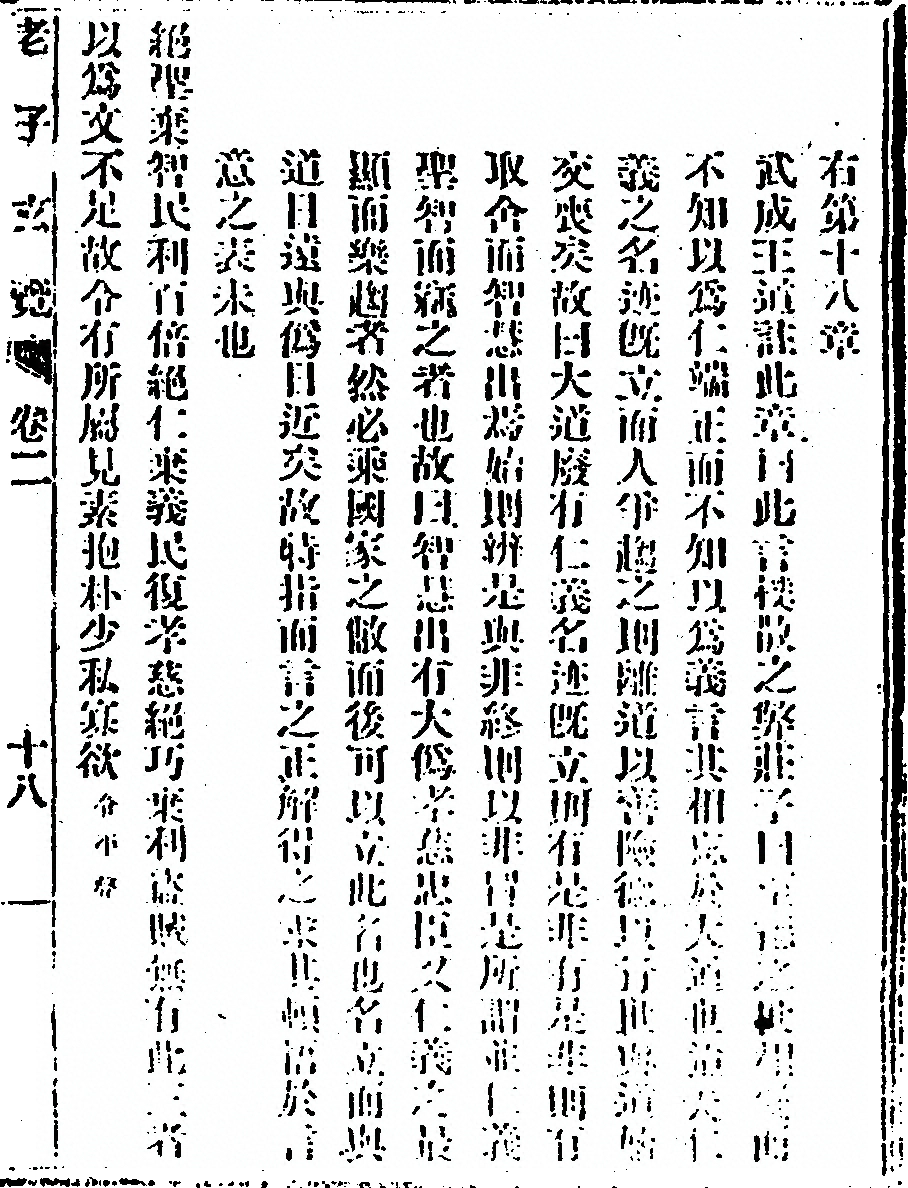 右第十八章
武成王道註此章曰此言樸散之弊莊子曰至德之世相愛而
不知以爲仁端正而不知以爲義言其相忘於大道也蓋夫仁
義之名迹旣立而人爭趨之則離道以善險德以行世與道
交喪矣故曰大道廢有仁義名迹旣立則有是非有是非則有
取舍而智慧出焉始則辨是與非終則以非冒是所謂並仁義
聖智而竊之者也故曰智慧出有大僞孝慈忠臣又仁義之最
顯而樂趨者然必乘國家之敝而後可以立此名也名立而與
道日遠與僞日近矣故特指而言之正解得之求其頓悟於言
意之表未也
絕聖棄智民利百倍絕仁棄義民復孝慈絕巧棄利盜賊無有此三者
以爲文不足故令有所屬見素抱朴少私寡欲 令平聲
老子玄覽 卷二 十八